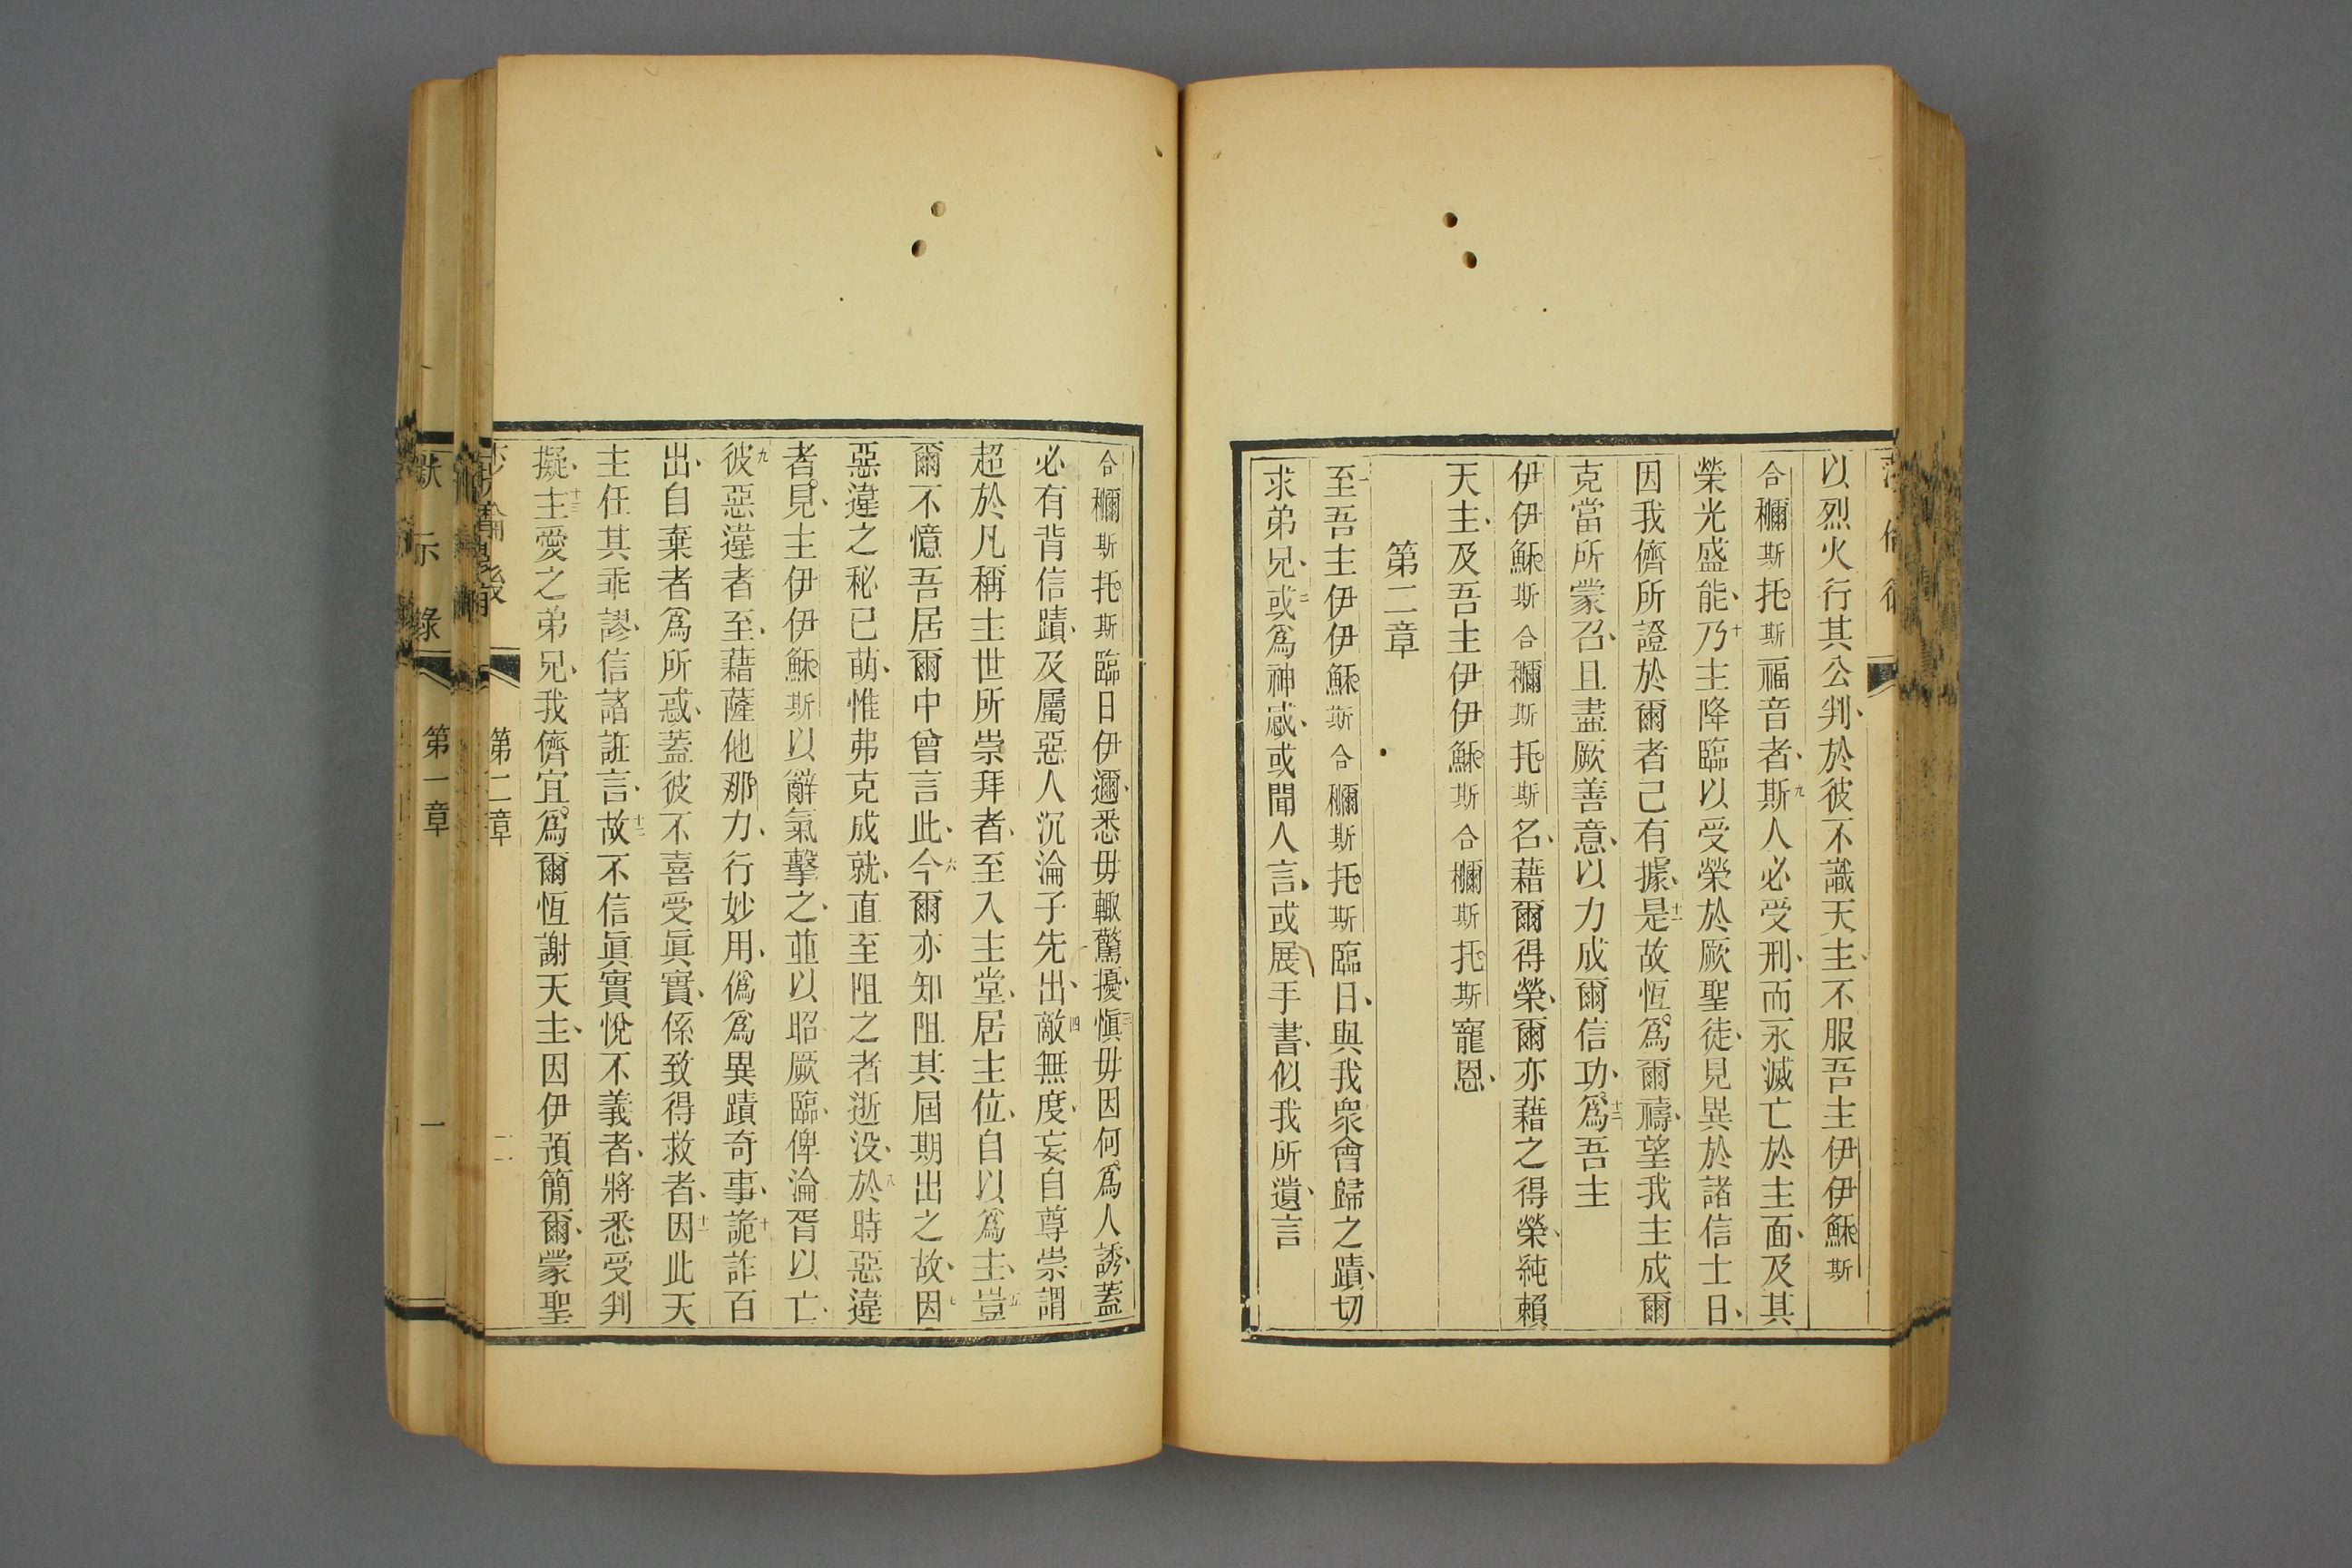 以烈火行其公判、於彼不識天主、不服吾主伊伊穌斯
合穪斯托斯福音者、九斯人必受刑、而永滅亡於主面、及其
榮光盛能、十乃主降臨以受榮於厥聖徒、見異於諸信士日、
因我儕所證於爾者己有據、十一是故恆爲爾禱、望我主成爾
克當所蒙召、且盡厥善意、以力成爾信功、十二爲吾主
伊伊穌斯合穪斯托斯名、藉爾得榮、爾亦藉之得榮、純賴
天主、及吾主伊伊穌斯合穪斯托斯寵恩、
第二章
一至吾主伊伊穌斯合穪斯托斯臨日、與我眾會歸之蹟、切
求弟兄、二或爲神感、或聞人言、或展手書、似我所遺言
合穪斯托斯臨日伊邇、悉毋輙驚擾、三愼毋因何爲人誘、蓋
必有背信蹟、及屬惡人沉淪子先出、四敵無度、妄自尊崇謂
超於凡稱主世所崇拜者、至入主堂、居主位、自以爲主、五豈
爾不憶吾居爾中曾言此、六今爾亦知阻其屆期出之故、七因
惡違之秘已萌、惟弗克成就、直至阻之者逝没、八於時惡違
者見、主伊伊穌斯以辭氣擊之、並以昭厥臨、俾淪胥以亡、
九彼惡違者至、藉薩他那力、行妙用、僞爲異蹟奇事、十詭詐百
出、自棄者爲所惑、蓋彼不喜受眞實、係致得救者、十一因此天
主任其乖謬、信諸誑言、十二故不信眞實悅不義者、將悉受判
擬、十三主愛之弟兄、我儕宜爲爾恆謝天主、因伊預簡爾、蒙聖
第二章
二
默示錄
第一章
一